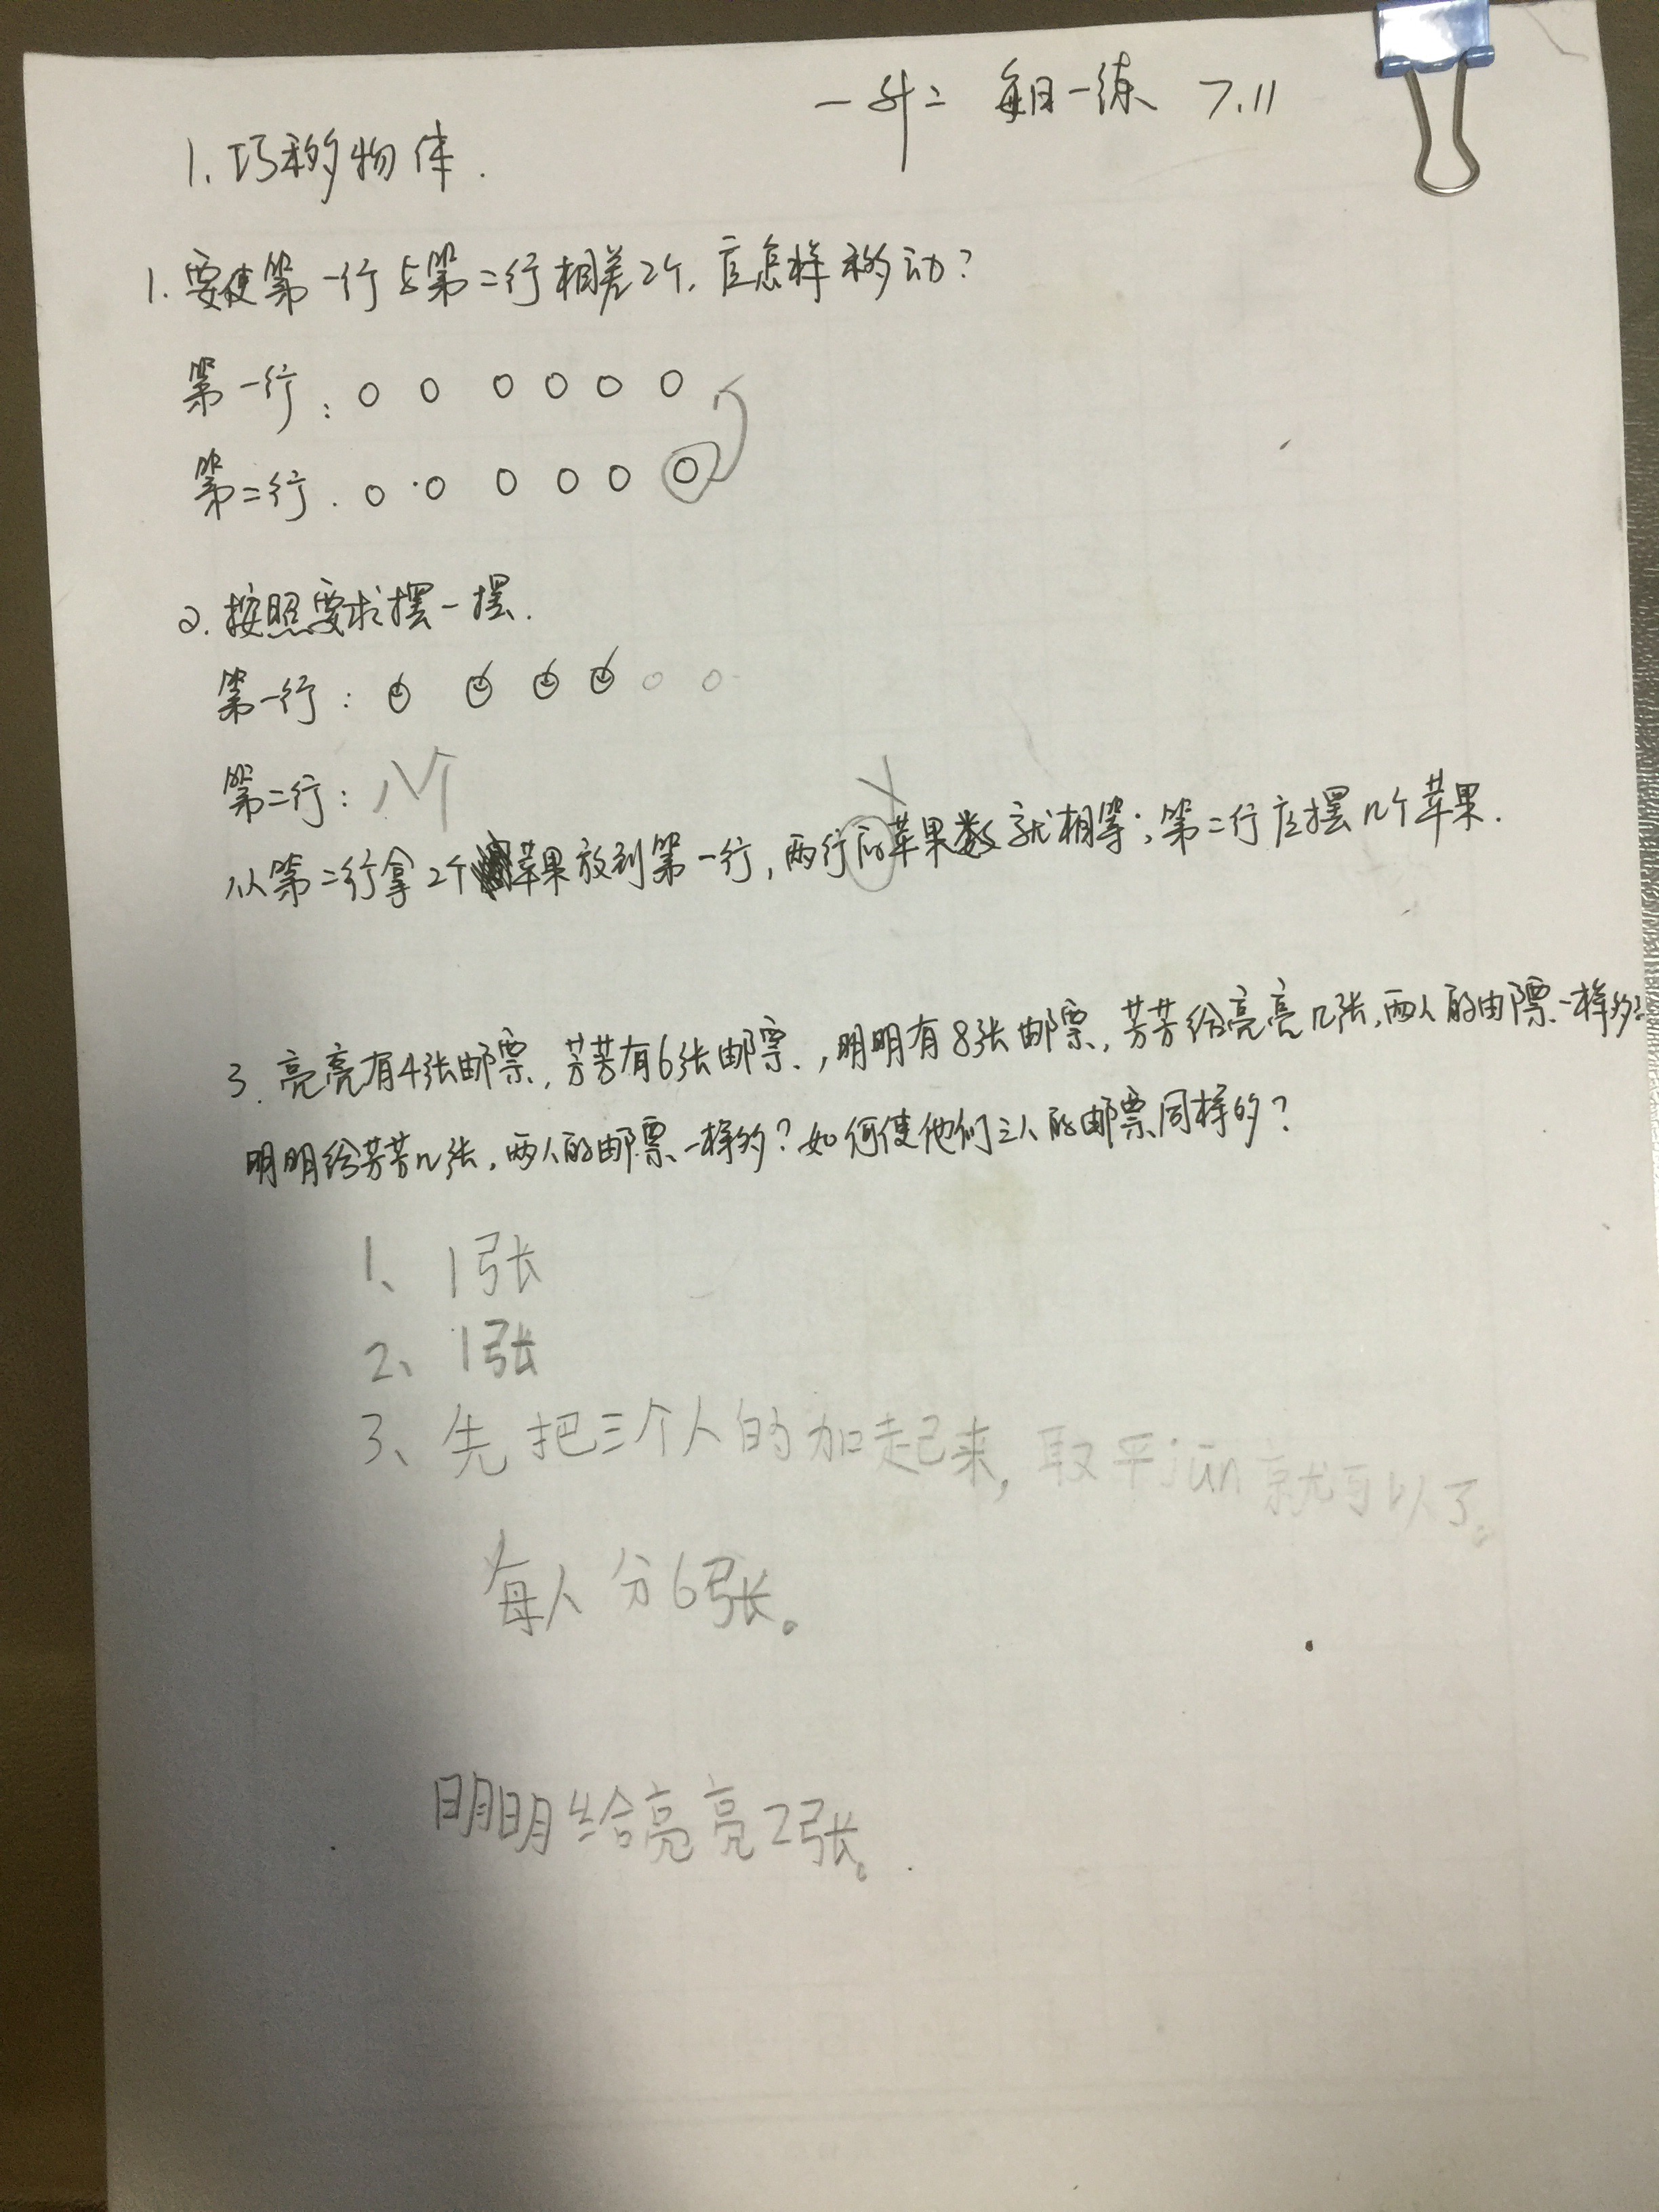 一升二 每日一练 7.11
1. 巧移物体.
1. 要使第一行与第二行相差2个,应怎样移动?
第一行: ○ ○ ○ ○ ○ ○
第二行. ○ ○ ○ ○ ○ ○
2. 按照要求摆一摆.
第一行:
第二行: 八个
从第二行拿2个苹果放到第一行,两行的苹果数就相等;第二行应摆几个苹果.
3. 亮亮有4张邮票,芳芳有6张邮票,明明有8张邮票,芳芳给亮亮几张,两人的邮票一样多?
明明给芳芳几张,两人的邮票一样多?如何使他们三人的邮票同样多?
1、 1张
2、 1张
3、先把三个人的加起来,取平jūn就可以了。
每人分6张。
明明给亮亮2张。